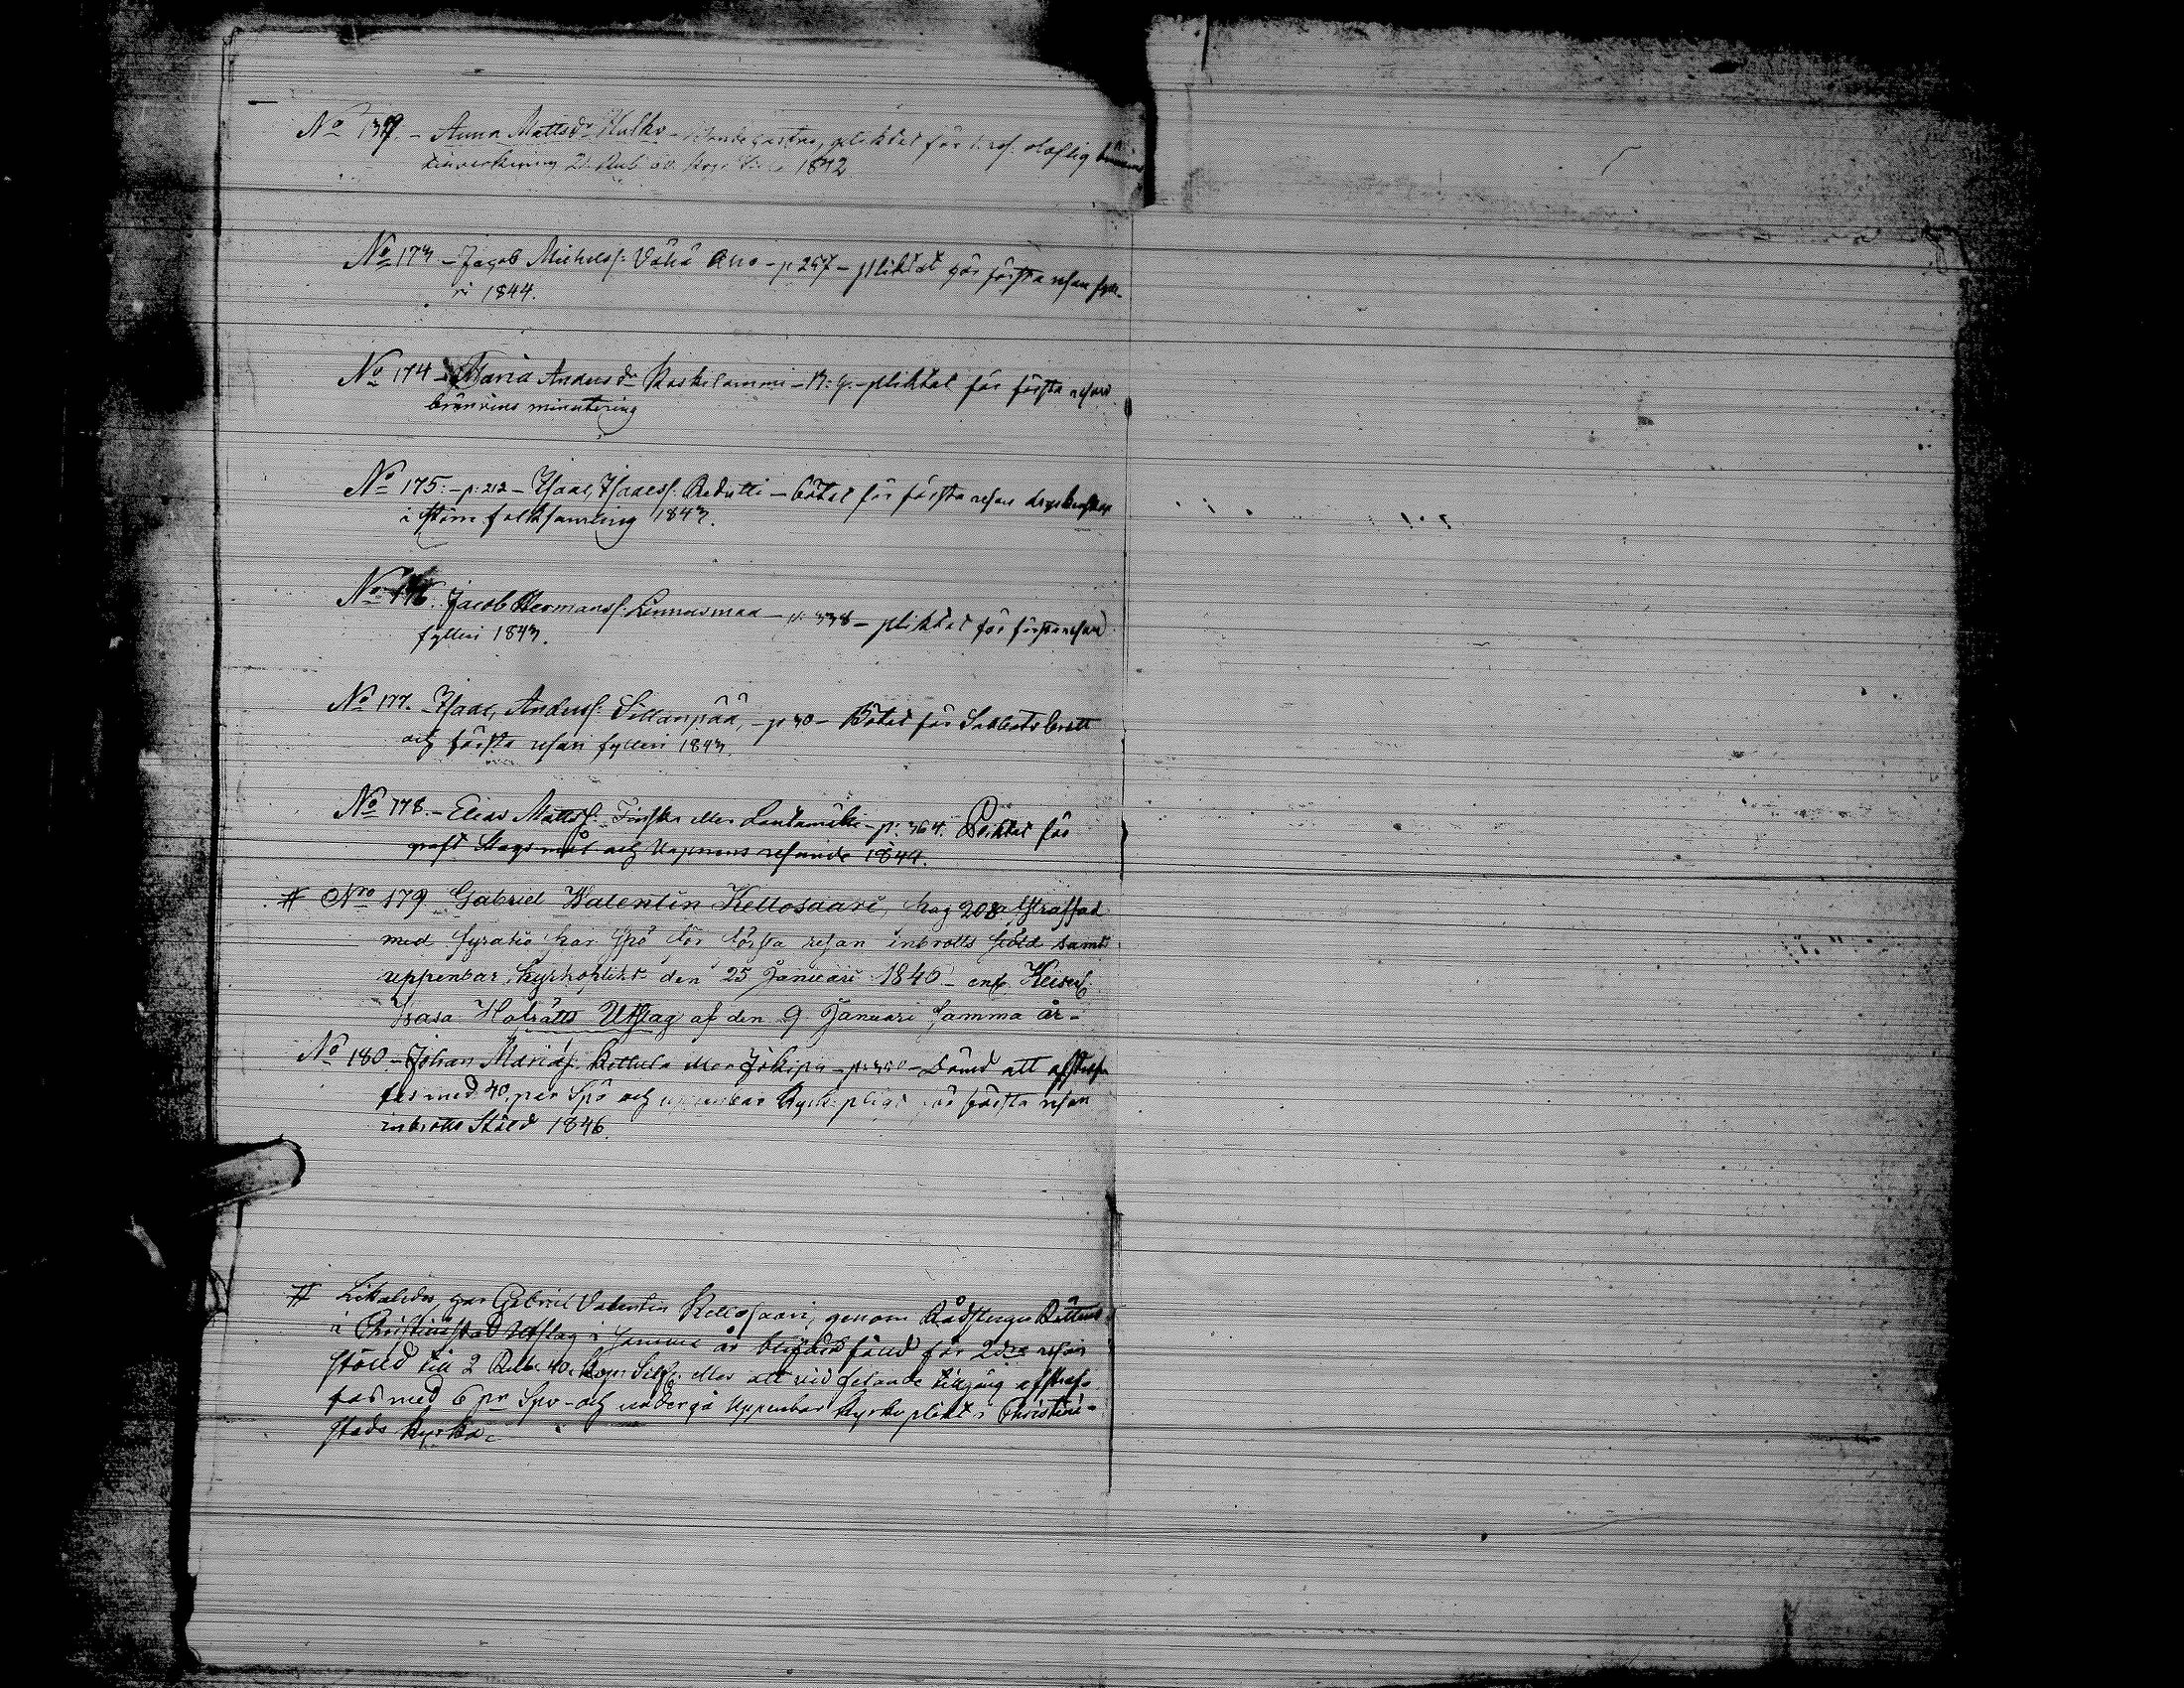 No 137. - Anna Mattsdr Hulko - pliktat för olaflig
tillverkning 2 Rub 1842
No 173 - Jacob Michelss. Vähä Aro - p 257 - pliktat för första resan fylle-
ri 1844.
No 174 - Maria Andersdr Koskelammi - pliktat för första resans
brännvins minutering
No 175. - p. 212 - Isaac Isaacss. Redutti - bötat för första resan dryckenskap
i större folksamling 1843.
No 176. Jacob Hermanss. Linnusmaa - p. 338 - pliktat för första resans
fylleri 1843.
No 177. - Isaac Anderss. Sillanpää, - p 30 - Bötat för Sabbatsbrott
och första resan fylleri 1843.
No 178. - Elias Mattss. eller Lautamäki - p. 364. Pliktat för
groft Slagsmål och 1844.
# Nro 179 Gabriel Walentin Kellosaari, pag 208. Straffad
med fyratio par Spö för första resan inbrotts stöld samt
uppenbar kyrkoplikt den 25 Januari 1840 - enl. Keiserl.
Wasa Hofrätts Utslag af den 9 Januari samma år -
No 180 - Johan Mariæs. Kettula eller Jokipii - p. 350 - Dömd att afstraf-
fas med 40 par Spö och uppenbar Kyrkopligt för första resan
inbrotts Stöld 1846.
# Likaledes har Gabriel Valentin Kellosaari, genom Rådstugu Rättens
i Christinestad Utslag i samma år blifvit fälld för 2dra resan
stöld till 2 Rub. 40 Kop. Silf. eller att vid felande tillgång afstraf-
fas med 6 pr Spö - och undergå Uppenbar Kyrkoplikt i Christine-
stads Kyrka.